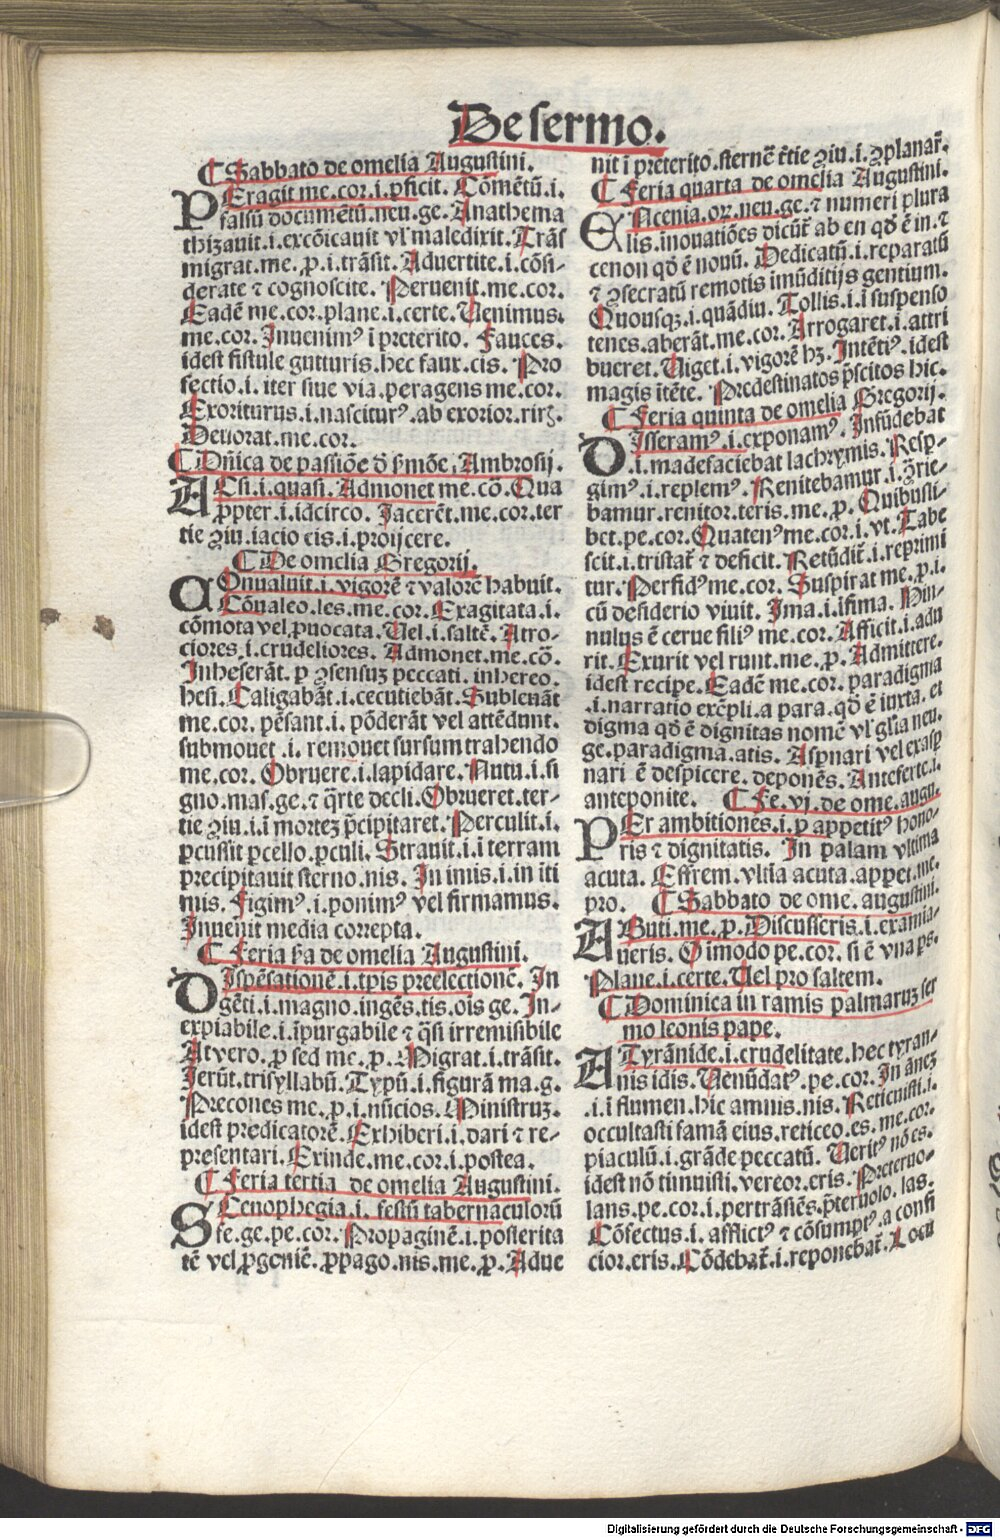 De sermo.
¶ Sabbato de omelia Augustini.
PEragit me.cor.i.ꝑficit. Cōmētū.i.
falsū documētū.neu.ge. Anathema
thizauit.i.excōicauit vl' maledixit. Trās
migrat.me.ꝓ.i.trāsit. Aduertite.i.cōsi-
derate ⁊ cognoscite. Peruenit.me.cor.
Eadē me.cor.plane.i.certe. Uenimus.
me.cor. Inuenimꝰ ī preterito. Fauces.
idest fistule gutturis.hec faux.cis. Pro
fectio.i.iter siue via.peragens me.cor.
Exoriturus.i.nasciturꝰ.ab exorior.rirꝭ.
Deuorat.me.cor.
¶ Dn̄ica de passiōe d̄ s̄mōe. Ambrosij.
ACsi.i.quasi. Admonet me.cō. Qua
ꝓpter.i.idcirco. Jacerēt.me.cor.ter
tie ꝯiu.iacio cis.i.proijcere.
¶ De omelia Gregorij.
COnualuit.i.vigorē ⁊ valorē habuit.
Cōualeo.les.me.cor. Exagitata.i.
cōmota vel ꝓuocata. Uel.i.saltē. Atro-
ciores.i.crudeliores. Admonet.me.cō.
Inheserāt.ꝑ ꝯsensuꝫ peccati.inhereo.
hesi. Caligabāt.i.cecutiebāt. Subleuāt
me.cor.pēsant.i.pōderāt vel attēdunt.
submouet.i.remouet sursum trahendo
me.cor. Obruere.i.lapidare. Nutu.i.si
gno.mas.ge.⁊ q̄rte decli. Obrueret.ter-
tie ꝯiu.i.ī morteꝫ p̄cipitaret. Perculit.i.
ꝑcussit ꝑcello.ꝑculi. Strauit.i.ī terram
precipitauit sterno.nis. In imis.i.in iti
mis. Figimꝰ.i.ponimꝰ vel firmamus.
Inuenit media correpta.
¶ Feria s̄a de omelia Augustini.
DIspēsationē.i.tp̄is preelectionē. In
gēti.i.magno.ingēs.tis.ois ge. In-
expiabile.i.īpurgabile ⁊ q̄si irremisibile
At vero.ꝓ sed me.ꝓ. Migrat.i.trāsit.
Jerūt.trisyllabū. Typū.i.figurā ma.g.
Precones me.ꝓ.i.nūcios. Ministruꝫ.
idest predicatorē. Exhiberi.i.dari ⁊ re-
presentari. Exinde.me.cor.i.postea.
¶ Feria tertia de omelia Augustini.
SCenophegia.i.festū tabernaculorū
fe.ge.pe.cor. Propaginē.i.posterita
tē vel ꝓgeniē.ꝓpago.nis.me.ꝓ. Adue
nit ī preterito.sternē t̄tie ꝯiu.i.ꝯplanar̄.
¶ Feria quarta de omelia Augustini.
ENcenia.oꝝ.neu.ge.⁊ numeri plura
lis.inouatiōes dicūt̄ ab en qd̄ ē in.⁊
cenon qd̄ ē nouū. Dedicatū.i.reparatū
⁊ ꝯsecratū remotis imūditijs gentium.
Quousqꝫ.i.quādiu. Tollis.i.ī suspenso
tenes.aberāt.me.cor. Arrogaret.i.attri
bueret. Uiget.i.vigorē hꝫ. Intētiꝰ.idest
magis itēte. Predestinatos p̄scitos hic.
¶ Feria quinta de omelia Gregorij.
DIsseramꝰ.i.exponamꝰ. Infūdebat
.i.madefaciebat lachrymis. Resp-
gimꝰ.i.replemꝰ. Renitebamur.i.ꝯ̄rie-
bamur.renitor.teris.me.ꝓ. Quibusli-
bet.pe.cor. Quatenꝰ me.cor.i.vt. Tabe
scit.i.tristat̄ ⁊ deficit. Retūdit̄.i.reprimi
tur. Perfidꝰ me.cor. Suspirat me.ꝓ.i.
cū desiderio viuit. Ima.i.īfima. Hin-
nulus ē cerue filiꝰ me.cor. Afficit.i.adu
rit. Exurit vel runt.me.ꝓ. Admittere.
idest recipe. Eadē me.cor. paradigma
.i.narratio exēpli.a para.qd̄ ē iuxta.et
digma qd̄ ē dignitas nomē vl' gl̄ia neu.
ge.paradigma.atis. Aspnari vel exasp
nari ē despicere.deponēs. Anteferte.i.
anteponite. ¶ Fe.vi.de ome.augu.
PEr ambitiones.i.ꝑ appetitꝰ hono-
ris ⁊ dignitatis. In palam vltima
acuta. Effrem.vltīa acuta.appet.me.
pro. ¶ Sabbato de ome. augustini.
AButi.me.ꝓ. Discusseris.i.examia-
ueris. Oīmodo pe.cor. si ē vna ps.
Plane.i.certe. Uel pro saltem.
¶ Dominica in ramis palmaruꝫ ser
mo leonis pape.
ATyrānide.i.crudelitate.hec tyran-
nis idis. Uenūdatꝰ.pe.cor. In āneꝫ
.i.ī flumen.hic amnis.nis. Reticuisti.i.
occultasti famā eius.reticeo.es.me.cor.
piaculū.i.grāde peccatū. Ueritꝰ nō es.
idest nō timuisti.vereor.eris. Preteruo-
lans.pe.cor.i.pertrāsiēs.p̄teruolo.las.
Cōfectus.i.afflictꝰ ⁊ cōsumptꝰ.a confi
cior.eris. Cōdebat̄.i.reponebat̄. Locu
Digitalisierung gefördert durch die Deutsche Forschungsgemeinschaft - DFG